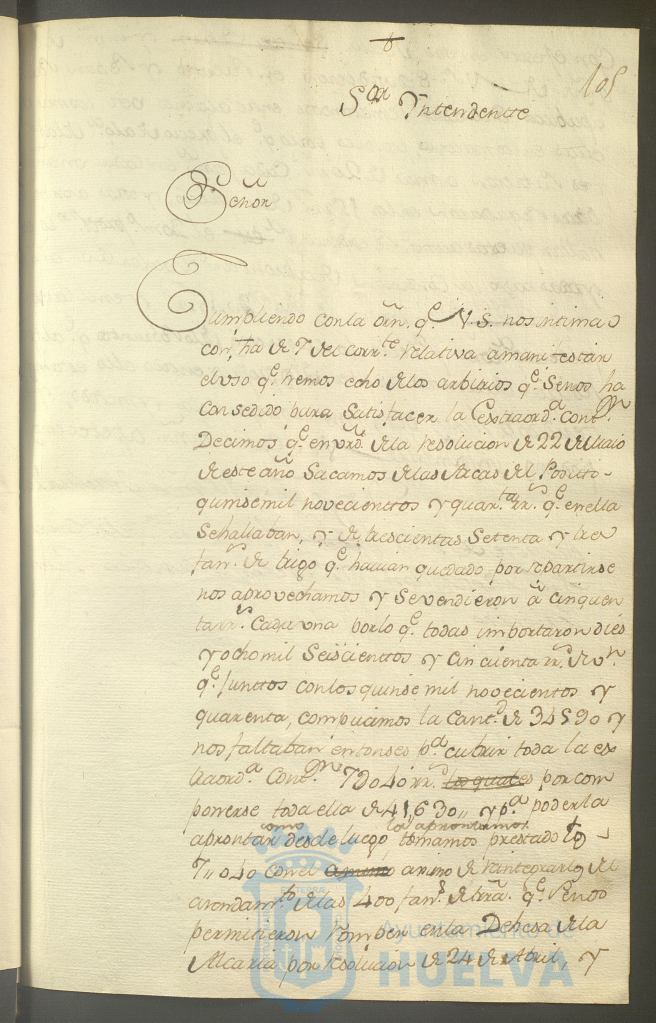 105
Sor Yntendente
Señor
Cumpliendo con la orn. qe. V.S. nos intima
con fha de 7 del corrte. relativa a manifestar
el uso qe. hemos echo de los arbitrios qe. se nos ha
consedido para satisfacer la extraorda. contn.
Decimos qe. en vrd. de la resolucion de 22 de Maio
de este año sacamos de las Arcas del Posito
quinse mil novecienttos y quarta. rrs. qe. en ella
se hallaban, y de trescientas setenta y tres
fans. de trigo qe. havian quedado por repartirse
nos aprovechamos y se vendieron a cinquen
ta rrs. cada una por lo qe. todas importaron dies
y ocho mil seiscienttos y cincuenta rrs. de vn.
qe. junttos con los quinse mil novecientos y
quarenta, compusimos la cantd. de 34590 y
nos faltaban entonses pa. cubrir toda la ex
traorda. contn. 7040 rrs. por com
ponerse toda ella de 41,630,, y pa. poderla
como los aprontamos
aprontar desde luego tomamos prestado
7,,040 con el animo de reintegrarlo del
arrendamto. de las 400 fans. de trra. qe. se nos
permitieron romper en la Dehesa de la
Alcaria por resolucion de 24 de Abril, y
Ayuntamiento de
HUELVA